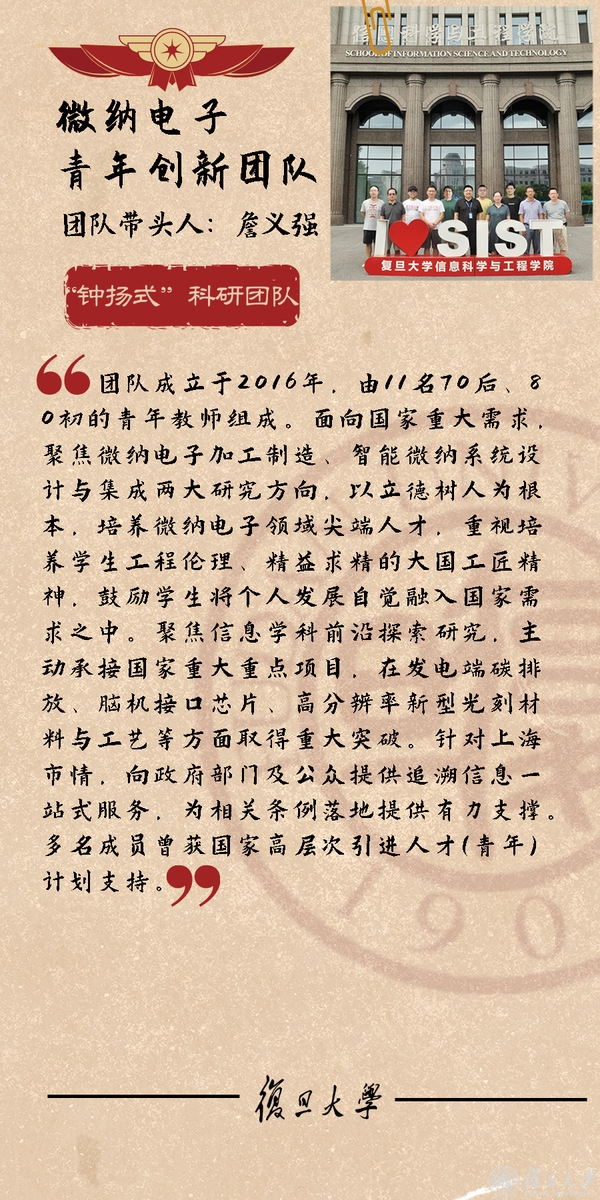 微纳电子
青年创新团队
团队带头人：詹义强
“钟扬式”科研团队
信息科学与工程学院
SCHOOL OF INFORMATION SCIENCE AND TECHNOLOGY
I SIST
复旦大学信息科学与工程学院
团队成立于2016年，由11名70后、8
0初的青年教师组成。面向国家重大需求，
聚焦微纳电子加工制造、智能微纳系统设
计与集成两大研究方向，以立德树人为根
本，培养微纳电子领域尖端人才，重视培
养学生工程伦理、精益求精的大国工匠精
神，鼓励学生将个人发展自觉融入国家需
求之中。聚焦信息学科前沿探索研究，主
动承接国家重大重点项目，在发电端碳排
放、脑机接口芯片、高分辨率新型光刻材
料与工艺等方面取得重大突破。针对上海
市情，向政府部门及公众提供追溯信息一
站式服务，为相关条例落地提供有力支撑。
多名成员曾获国家高层次引进人才(青年)
计划支持。
190
復旦大學
復旦大學